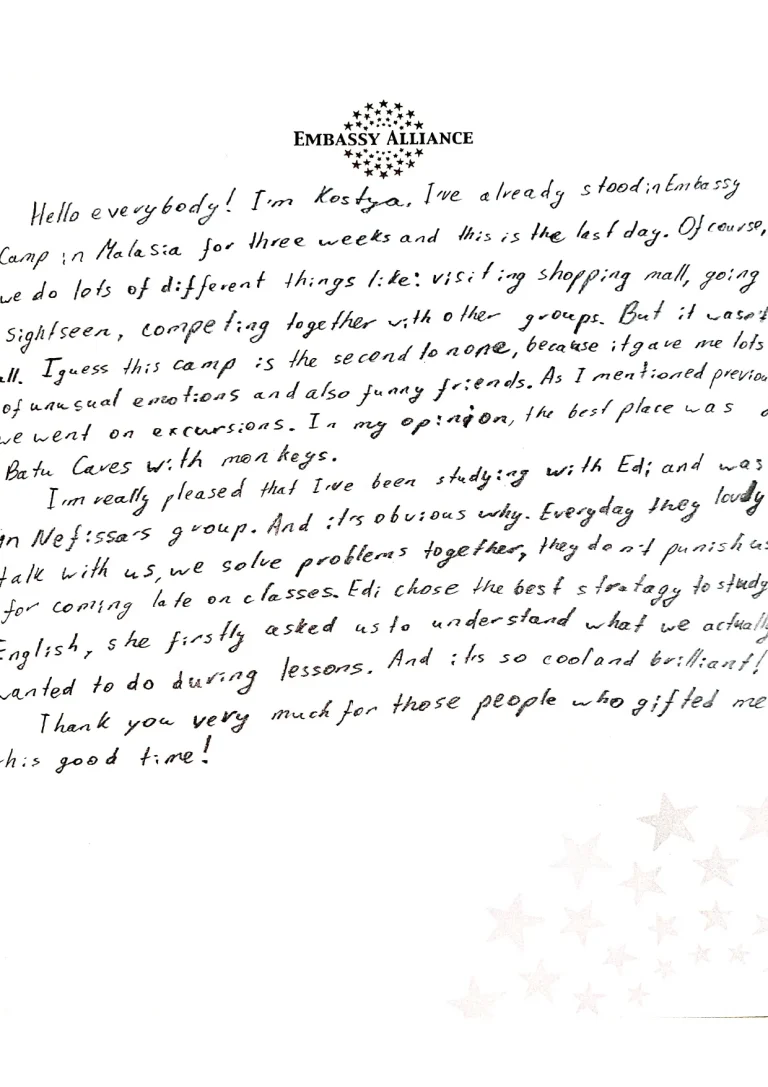 EMBASSY ALLIANCE
Hello everybody! I'm Kostya, I've already stood in Embassy
Camp in Malasia for three weeks and this is the last day. Of course,
we do lots of different things like: visiting shopping mall, going
sightseen, competing together with other groups. But it wasn't
all. I guess this camp is the second to none, because it gave me lots
of unusual emotions and also funny friends. As I mentioned previou
we went on excursions. In my opinion, the best place was
Batu Caves with monkeys.
I'm really pleased that I've been studying with Edi and was
in Nefissa's group. And it's obvious why. Everyday they lovely
talk with us, we solve problems together, they don't punish us
for coming late on classes. Edi chose the best stratagy to study
English, she firstly asked us to understand what we actually
wanted to do during lessons. And it's so cool and brilliant!
Thank you very much for those people who gifted me
this good time!